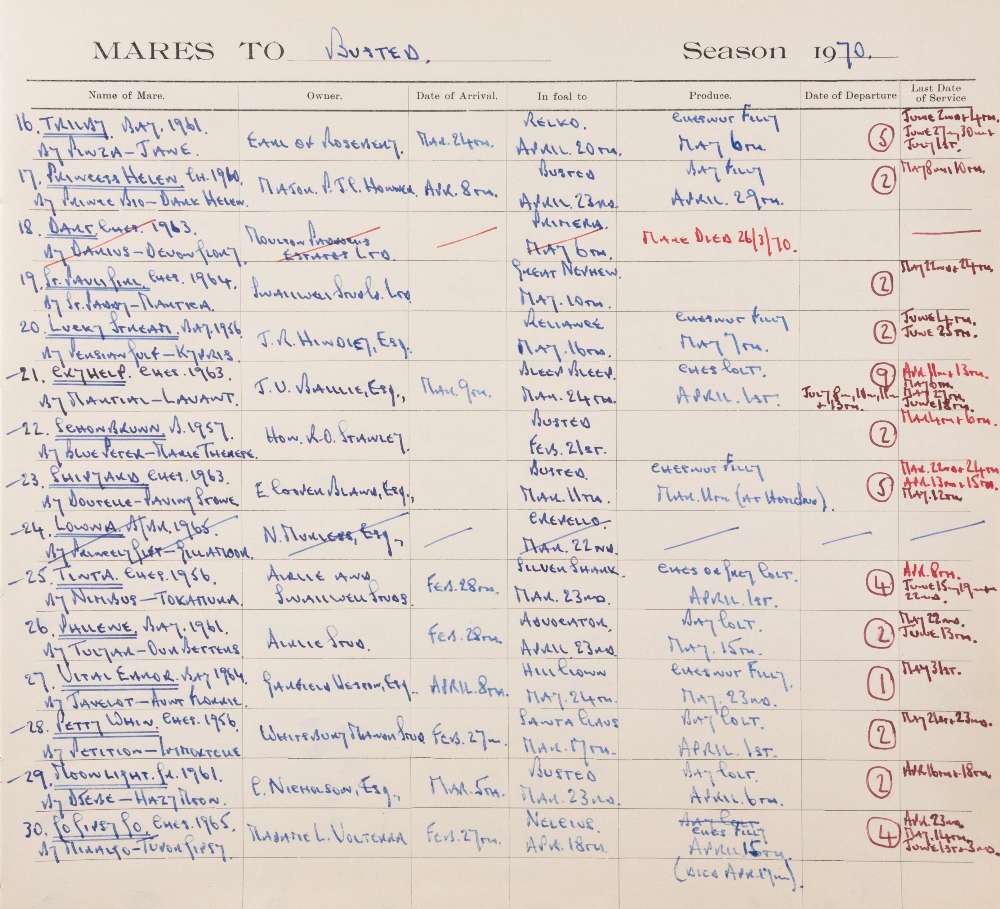 MARES TO BUSTED. Season 1970.
Name of Mare. Owner. Date of Arrival. In foal to Produce. Date of Departure Last Date of Service
16. TRILBY. BAY. 1961. RELKO. CHESNUT FILLY JUNE 2nd & 4TH.
BY PINZA – JANE. EARL OF ROSEBERY. MAR. 24TH. APRIL. 20TH. MAY 6TH. 5 JUNE 27TH, 30TH & JULY 1ST.
17. PRINCESS HELEN. CH. 1960. BUSTED BAY FILLY 2 MAY 8TH & 10TH.
BY PRINCE BIO – DARK HELEN. MAJOR. P.T.C. APR. 8TH. APRIL 23RD. APRIL. 29TH.
18. DART. CHES. 1963. PRIMERA.
BY DARIUS – DEVON GLORY. MOULTON PADDOCKS ESTATES LTD. MAY 6TH. MARE DIED 26/3/70.
19. ST. PAULI GIRL. CHES. 1964. GREAT NEPHEW. 2 MAY 22ND & 24TH.
BY ST. PADDY – MARTICA. SWALLWELL STUDS. LTD MAY. 10TH.
20. LUCKY STREAM. BAY. 1956 RELIANCE CHESNUT FILLY 2 JUNE 4TH.
BY PERSIAN GULF – KYPRIS. J.R. HINDLEY, ESQ. MAY. 16TH. MAY 7TH. JUNE 25TH.
– 21. CRY HELP. CHES. 1963. BLEEP BLEEP. CHES COLT. 9 APR. 11TH & 13TH.
BY MARTIAL – LAVANT. J.U. BAILLIE, ESQ., MAR. 9TH. MAR. 24TH. APRIL. 1ST. JULY 8TH, 10TH, 11TH & 13TH. MAY 6TH. MAY 27TH JUNE 18TH.
– 22. SCHONBRUNN. B. 1957. BUSTED 2 MAR 4TH & 6TH.
BY BLUE PETER – MARIE THERESE. HON. R.O. STANLEY. FEB. 21ST.
– 23. SHIPYARD CHES. 1963 BUSTED CHESNUT FILLY 5 MAR. 22ND & 24TH
BY DOUTELLE – PAVING STONE E. COOPER BLAND, ESQ., MAR. 11TH. MAR. 11TH (AT HOME). APR. 13TH & 15TH. MAY. 12TH
– 24. LOWNA. B/BR. 1965. CREPELLO.
BY PRINCELY GIFT – GILLAMOOR. N. MURLESS, ESQ., MAR. 22ND.
– 25. TINTA. CHES. 1956. SILVER SHARK. CHES OR GREY COLT. 4 APR. 8TH.
BY NIMBUS – TOKAMURA. AIRLIE AND SWALLWELL STUDS. FEB. 28TH. MAR. 23RD. APRIL. 1ST. JUNE 15TH, 19TH & 22ND.
26. PHILENE. BAY. 1961. ADVOCATOR. BAY COLT. 2 MAY 22ND.
BY TULYAR – OUR BETTERS. AIRLIE STUD. FEB. 28TH APRIL 23RD MAY. 15TH. JUNE 13TH.
27. VITAL ERROR. BAY 1964. HILL CLOWN CHESNUT FILLY. 1 MAY 31ST.
BY JAVELOT – AUNT. GARFIELD WESTON, ESQ. APRIL. 8TH. MAY. 24TH. MAY. 23RD.
– 28. PETTY WHIN. CHES. 1956 SANTA CLAUS BAY COLT. 2 MAY 21ST & 23RD.
BY PETITION – IMMORTELLE WHITSBURY MANOR STUD FEB. 27TH. MAR. 17TH. APRIL. 1ST.
– 29. MOONLIGHT. GR. 1961. BUSTED BAY COLT. 2 APR. 16TH & 18TH.
BY – HAZY MOON. C. NICHOLSON, ESQ., MAR. 5TH. MAR. 23RD. APRIL. 6TH.
30. GO GIPSY GO. CHES. 1965. NELCIUS. BAY COLT CHES FILLY 4 APR. 23RD.
BY MIRALGO – TUDOR GIPSY. MADAME L. VOLTERRA FEB. 27TH. APR. 18TH. APRIL 15TH. MAY. 14TH. JUNE 1ST & 3RD.
(DIED APR. 17TH).